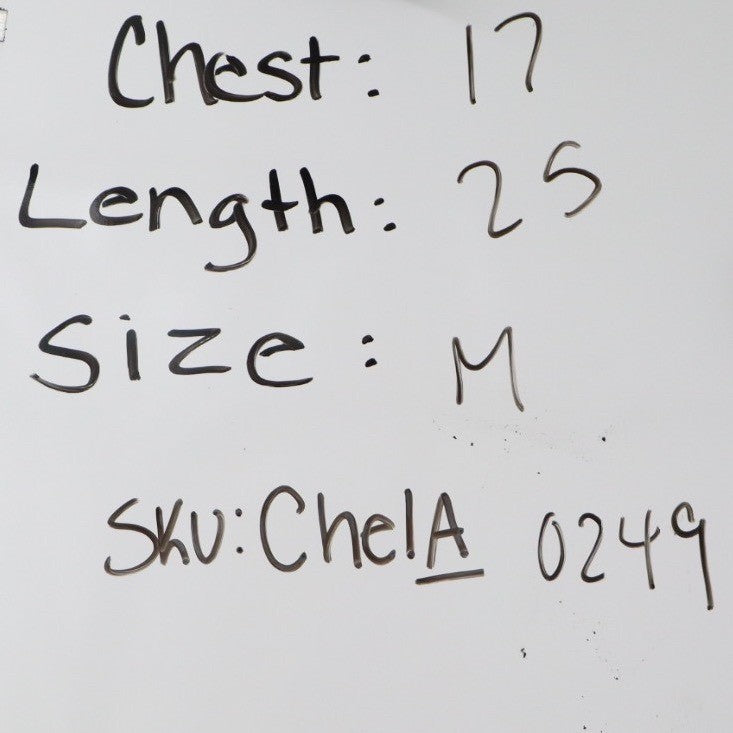 Chest: 17
Length: 25
Size: M
SKU: ChelA 0249